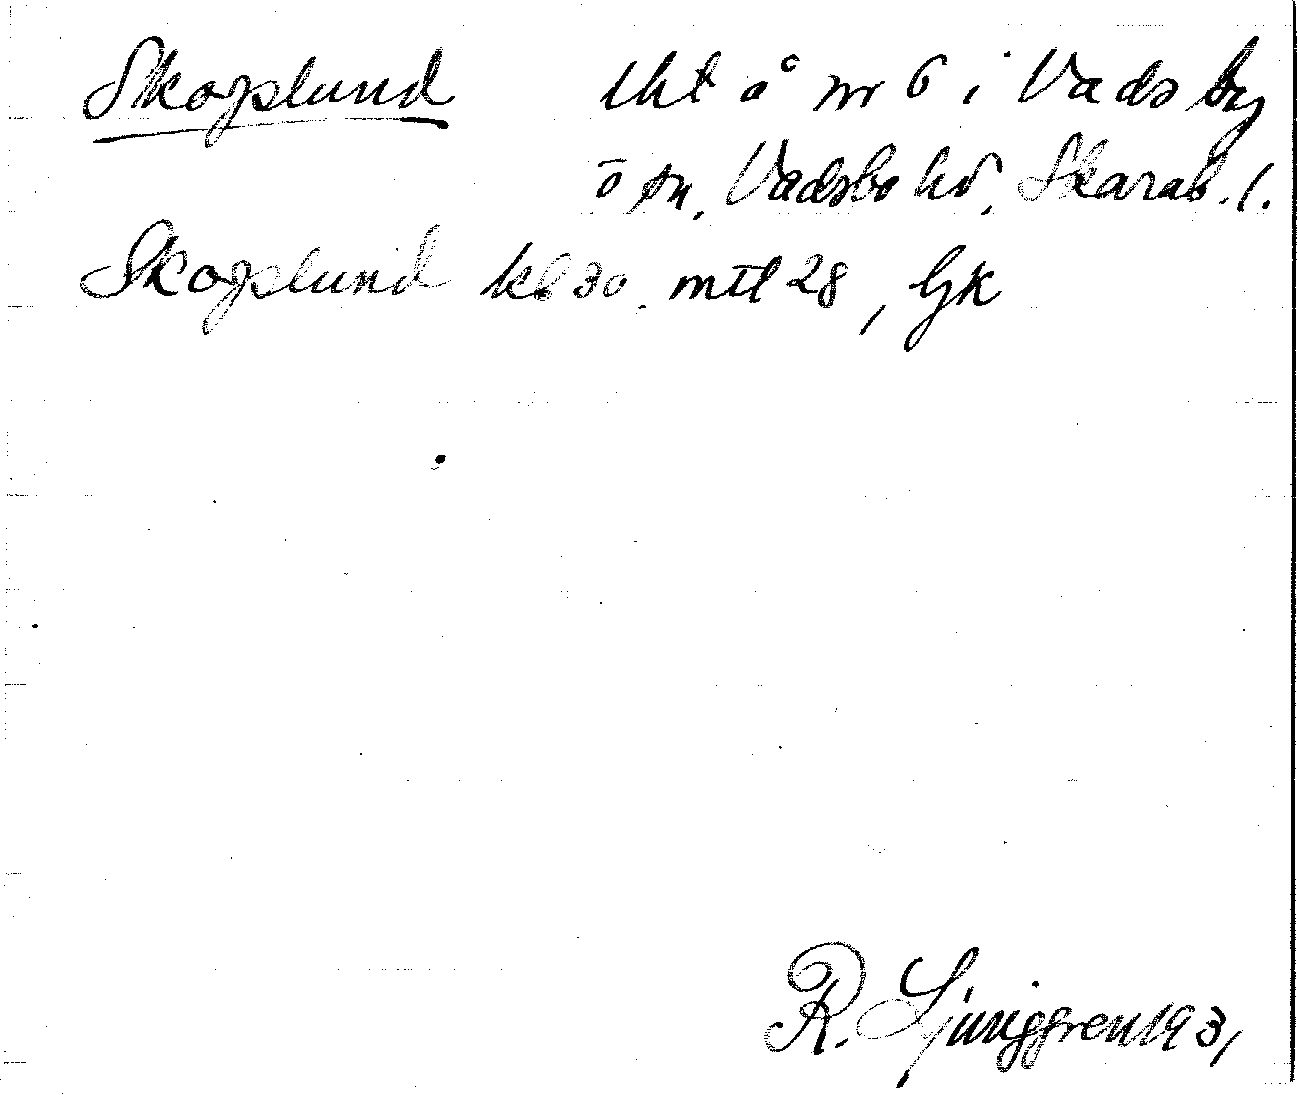 Skogslund lht å nr 6 i Vads by
o sn, Vadsbo hd, Skarab. l.
Skogslund kb 30. mtl 28, Gk
R. Ljunggren 1931